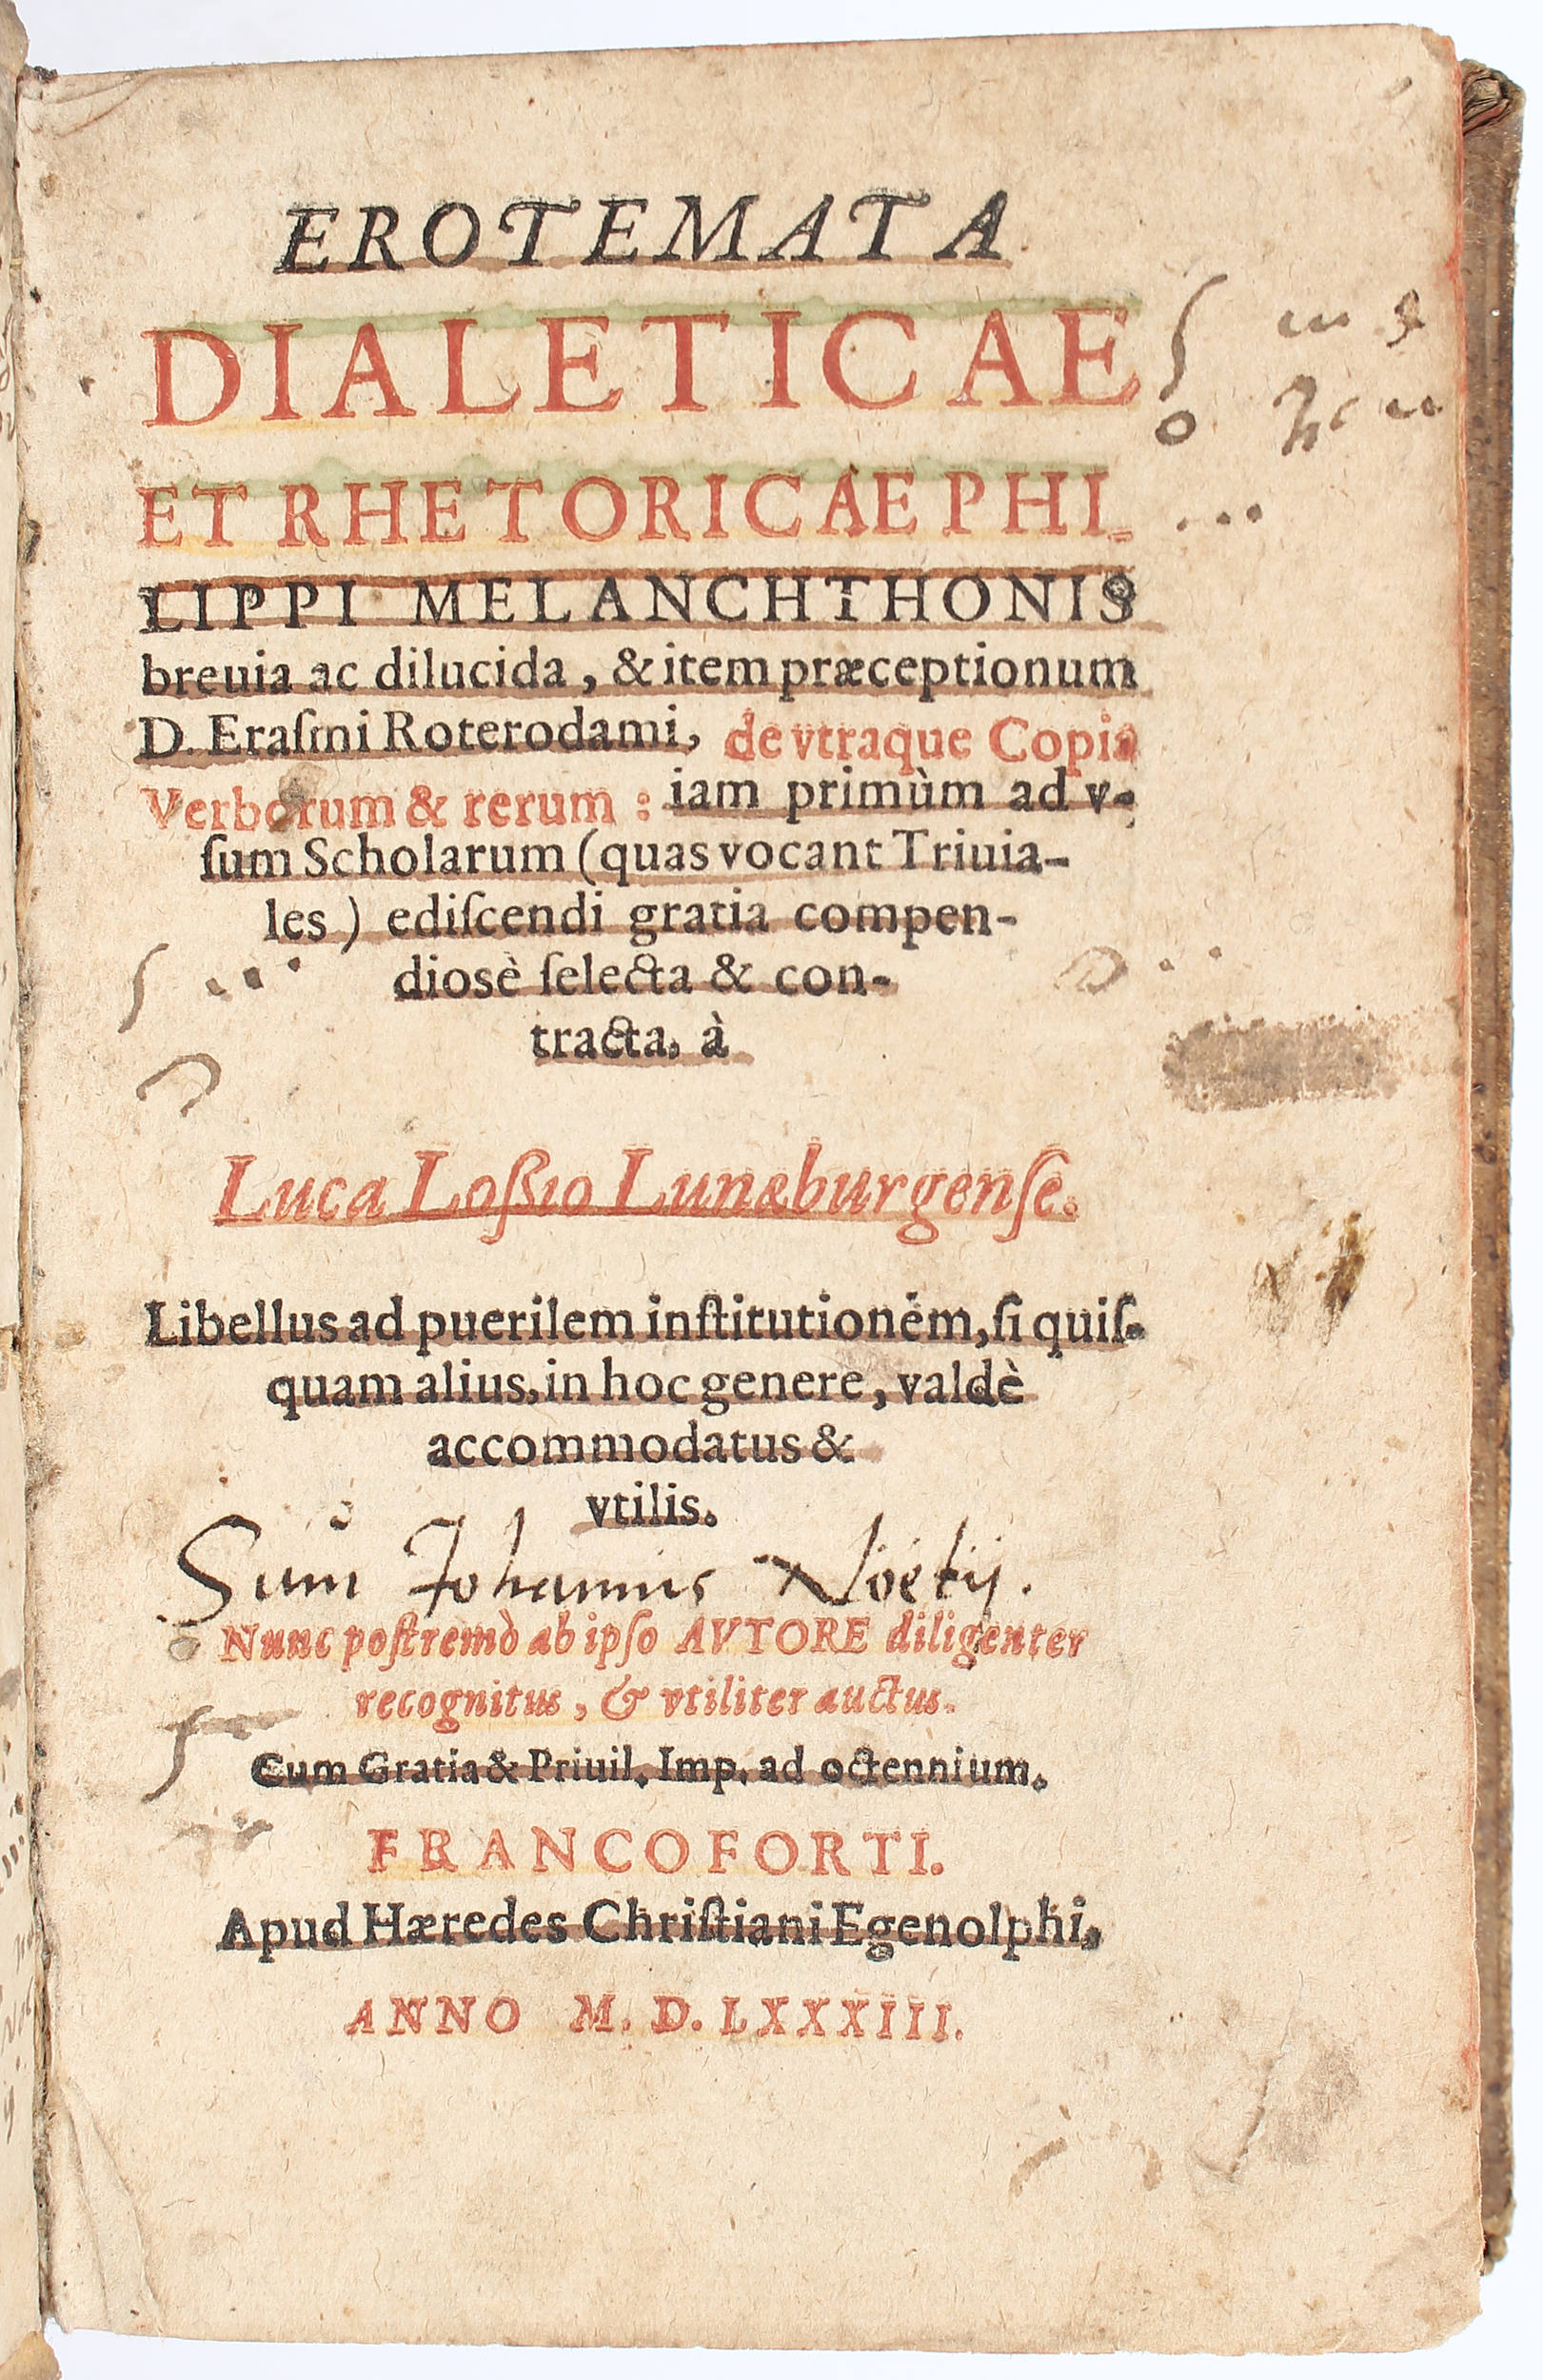 EROTEMATA
DIALETICAE
ET RHETORICAE PHI-
LIPPI MELANCHTHONIS
breuia ac dilucida, & item præceptionum
D. Eraſmi Roterodami, de vtraque Copia
Verborum & rerum : iam primùm ad v-
ſum Scholarum (quas vocant Triuia-
les) ediſcendi gratia compen-
diosè ſelecta & con-
tracta, à
Luca Loßio Lunæburgenſe.
Libellus ad puerilem inſtitutioném, ſi quiſ-
quam alius, in hoc genere, valdè
accommodatus &
vtilis.
Sum Johannis Noëtij.
Nunc poſtremò ab ipſo AVTORE diligenter
recognitus, & vtiliter auctus.
Cum Gratia & Priuil. Imp. ad octennium.
FRANCOFORTI.
Apud Hæredes Chriſtiani Egenolphi,
ANNO M. D. LXXXIII.